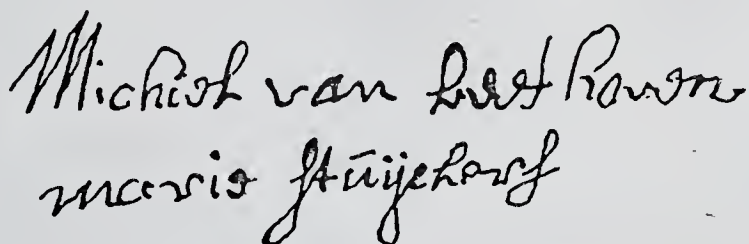 Michiel van beethoven
marie stŭijckers